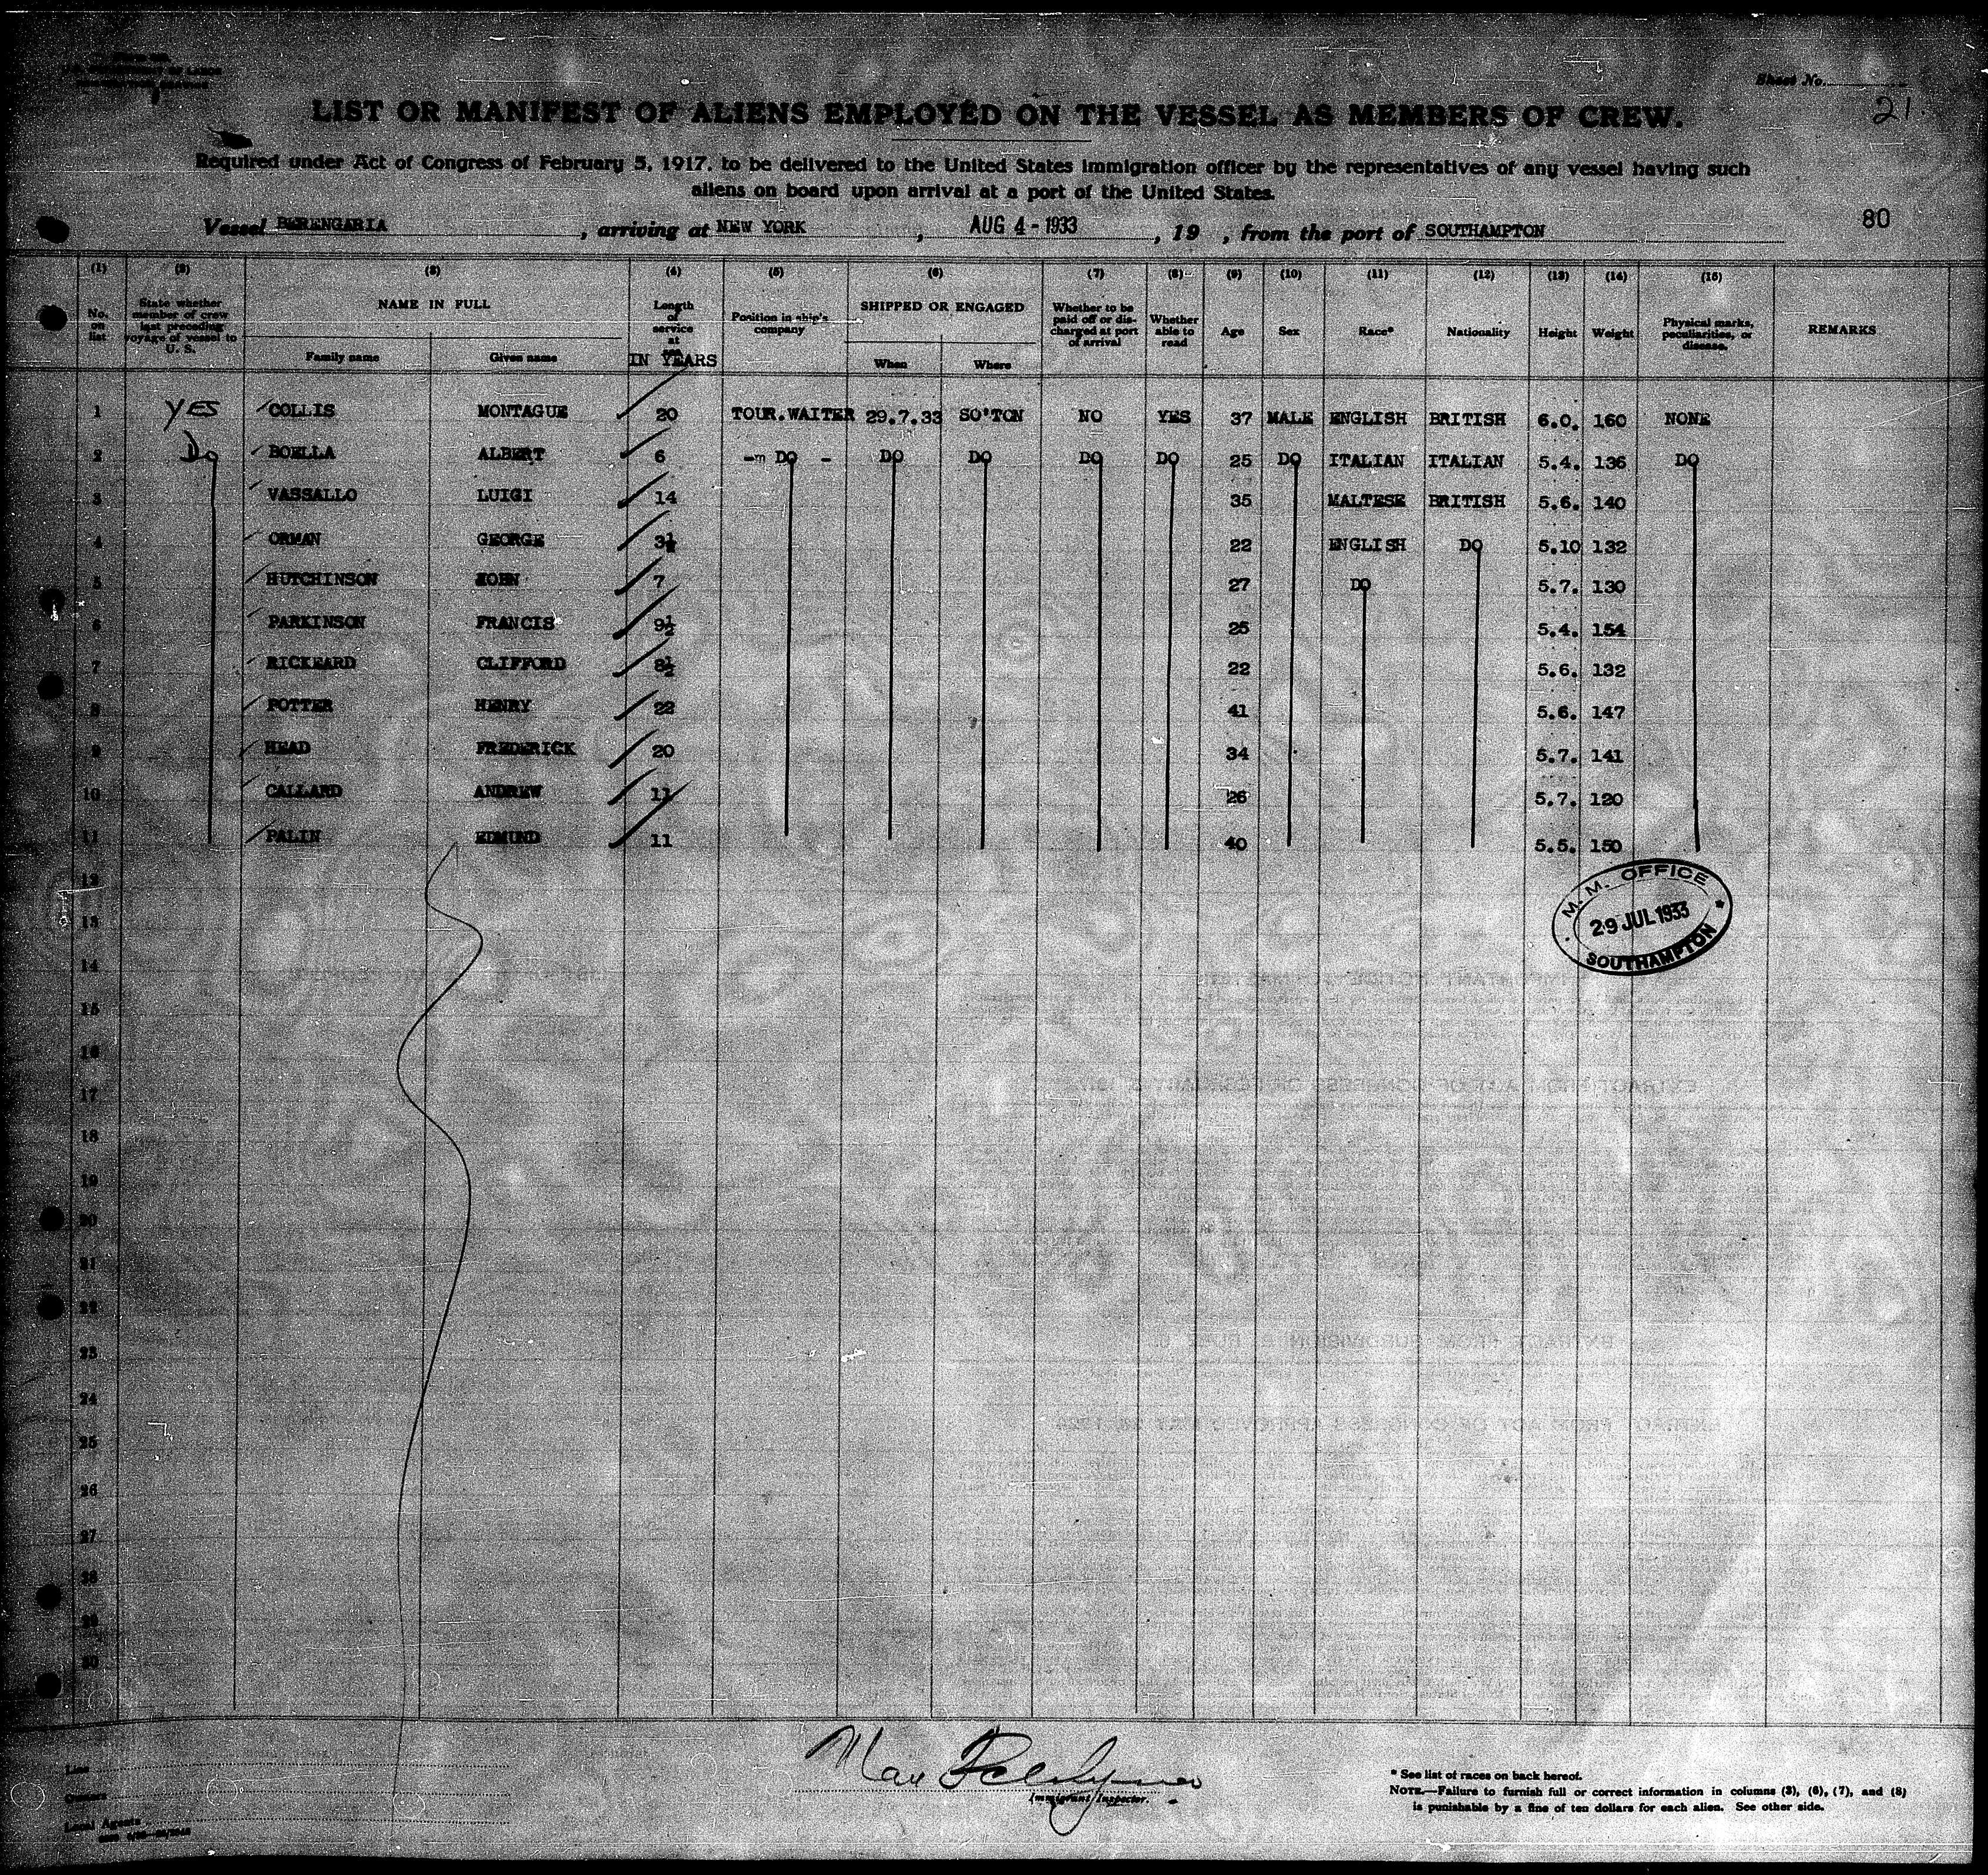 Sheet No.
21.
LIST OR MANIFEST OF ALIENS EMPLOYED ON THE VESSEL AS MEMBERS OF CREW.
Required under Act of Congress of February 5, 1917, to be delivered to the United States immigration officer by the representatives of any vessel having such
aliens on board upon arrival at a port of the United States.
80
Vessel BERENGARIA, arriving at NEW YORK, AUG 4 - 1933, 19 , from the port of SOUTHAMPTON
(1) (2) (3) (4) (5) (6) (7) (8) (9) (10) (11) (12) (13) (14) (15)
No. on list
State whether member of crew last preceding voyage of vessel to U. S.
NAME IN FULL
Family name Given name
Length of service at sea
IN YEARS
Position in ship's company
SHIPPED OR ENGAGED
When Where
Whether to be paid off or discharged at port of arrival
Whether able to read
Age
Sex
Race*
Nationality
Height
Weight
Physical marks, peculiarities, or disease.
REMARKS
1 YES COLLIS MONTAGUE 20 TOUR.WAITER 29.7.33 SO'TON NO YES 37 MALE ENGLISH BRITISH 6.0. 160 NONE
2 Do BOELLA ALBERT 6 - DO - DO DO DO DO 25 DO ITALIAN ITALIAN 5.4. 136 DO
3 VASSALLO LUIGI 14 35 MALTESE BRITISH 5.6. 140
4 ORMAN GEORGE 3½ 22 ENGLISH DO 5.10 132
5 HUTCHINSON JOHN 7 27 DO 5.7. 130
6 PARKINSON FRANCIS 9½ 25 5.4. 154
7 RICKEARD CLIFFORD 8½ 22 5.6. 132
8 POTTER HENRY 22 41 5.6. 147
9 HEAD FREDERICK 20 34 5.7. 141
10 CALLARD ANDREW 11 26 5.7. 120
11 PALIN EDMUND 11 40 5.5. 150
12
M. M. OFFICE
29 JUL 1933
SOUTHAMPTON
13
14
15
16
17
18
19
20
21
22
23
24
25
26
27
28
29
30
Immigrant Inspector.
Line
Owners
Local Agents
* See list of races on back hereof.
NOTE.—Failure to furnish full or correct information in columns (3), (6), (7), and (8)
is punishable by a fine of ten dollars for each alien. See other side.